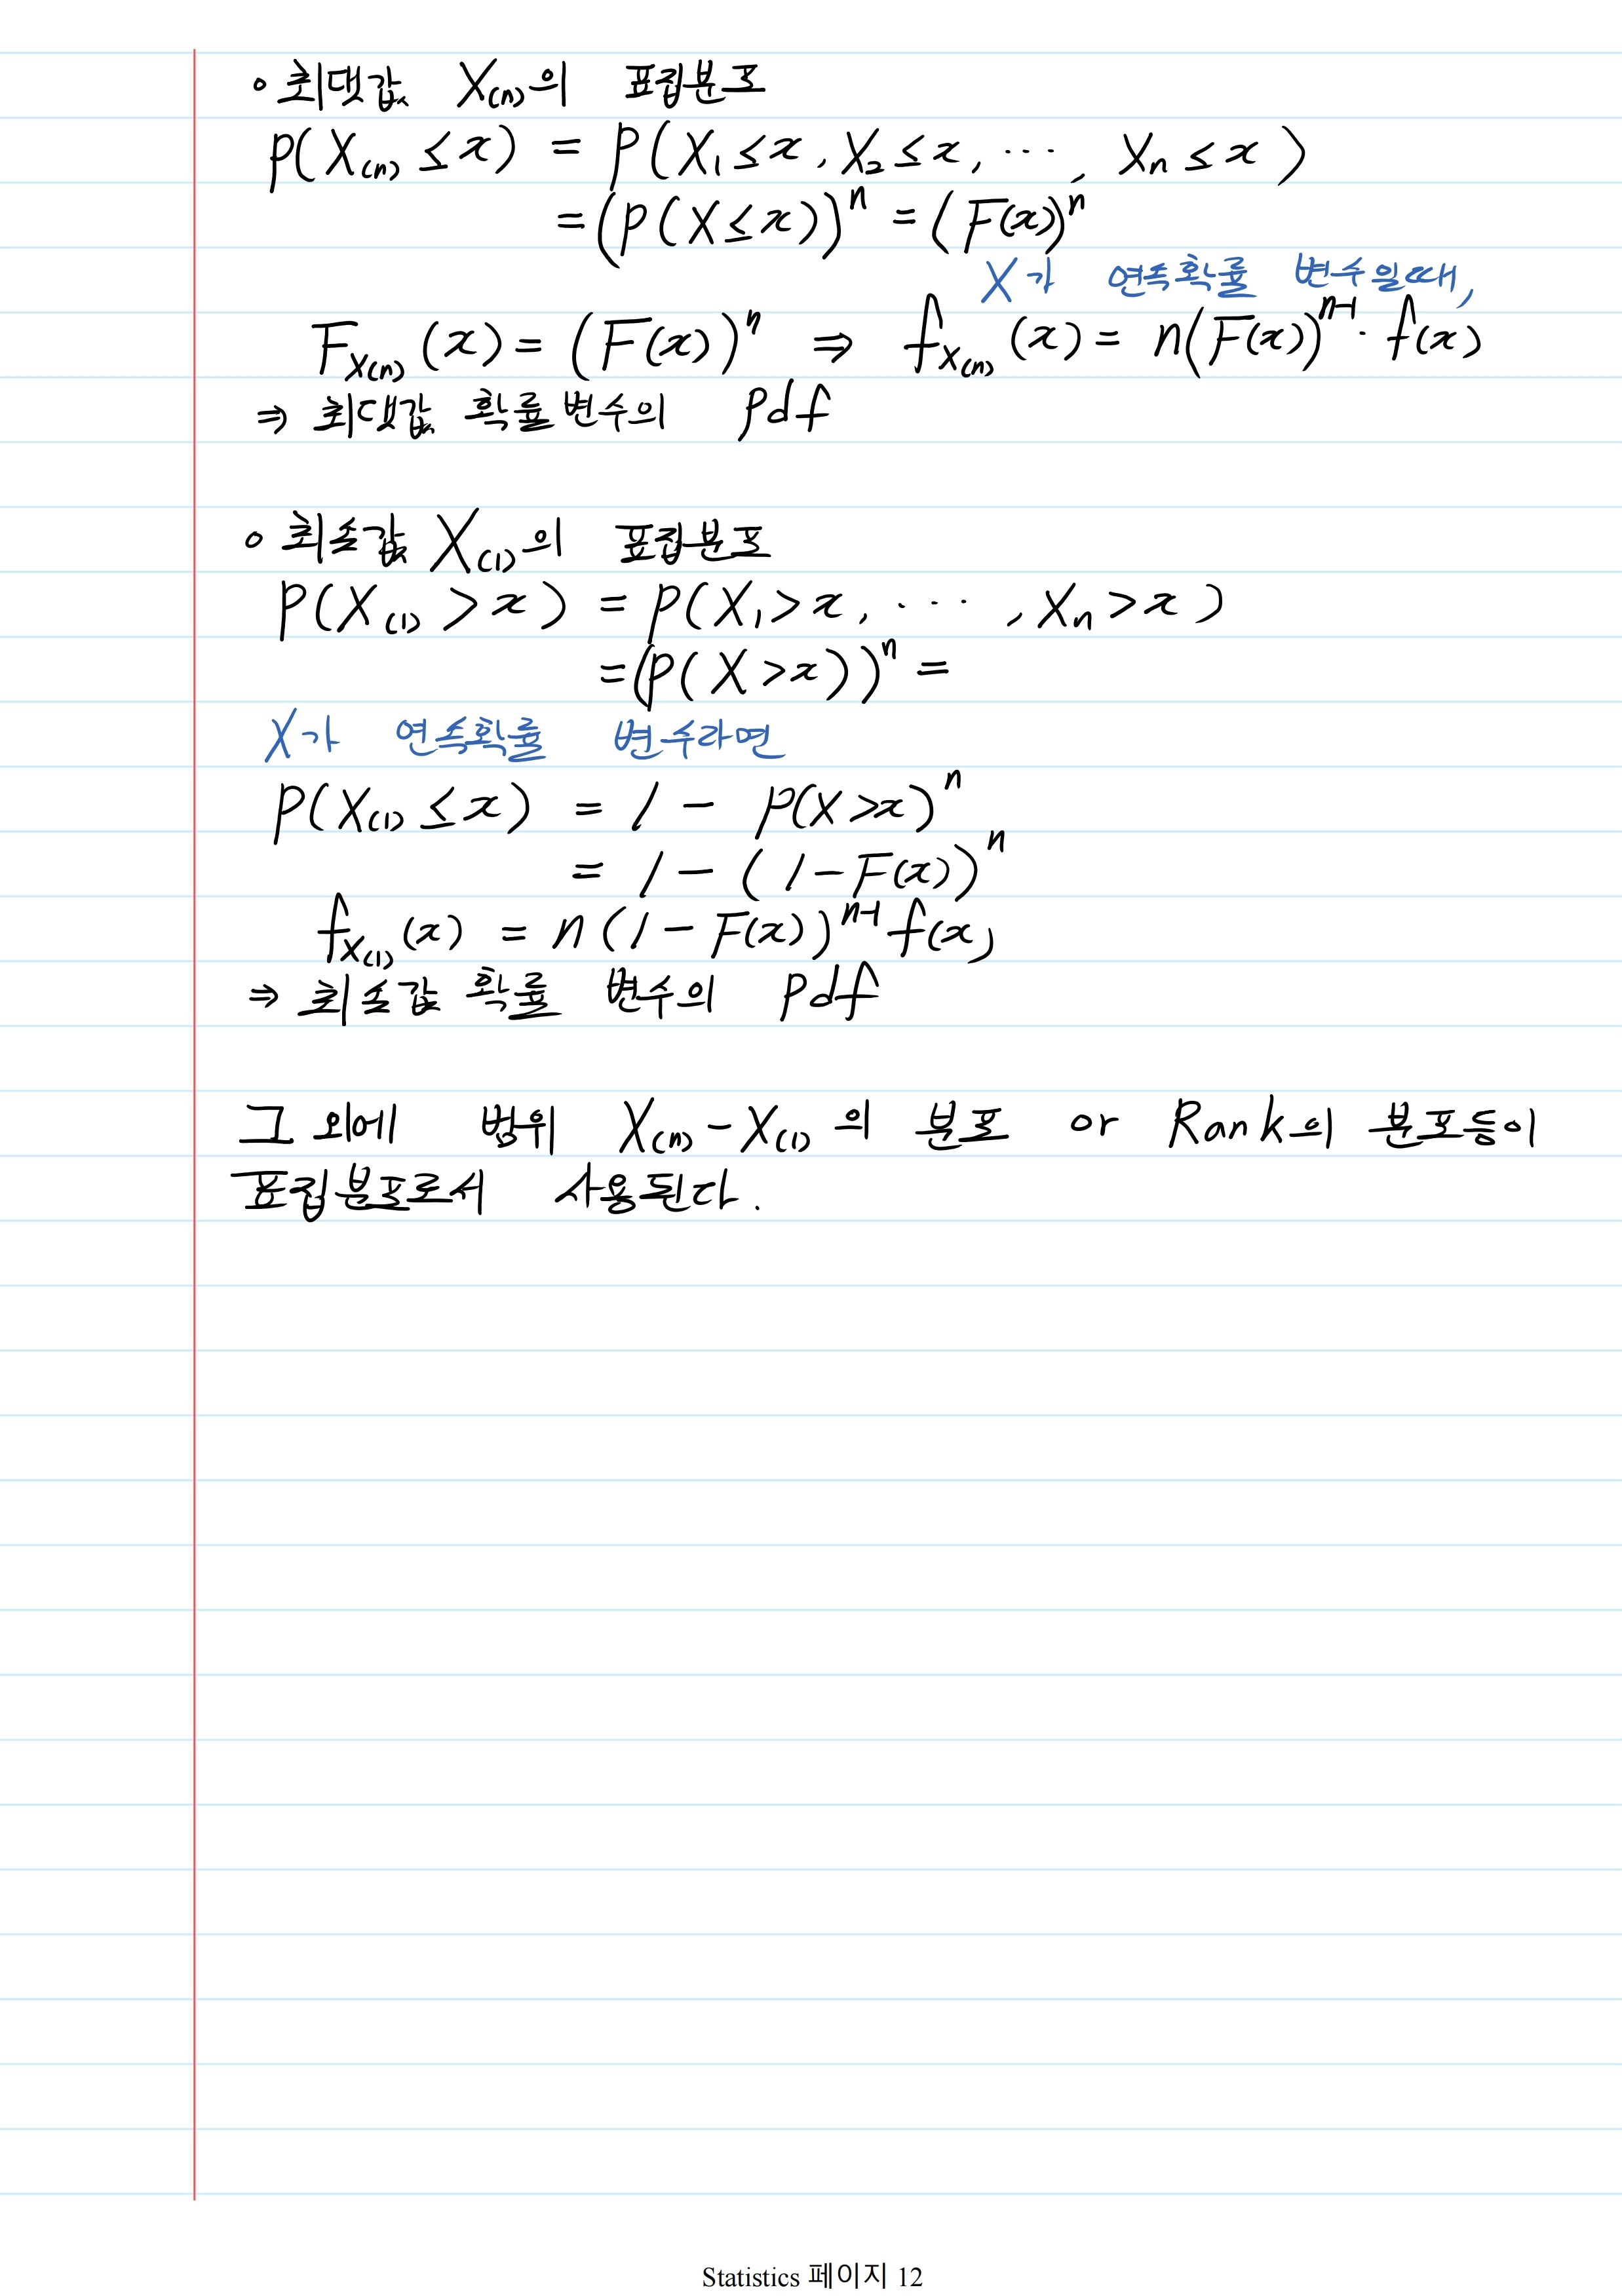 ◦ 최댓값 X₍ₙ₎의 표집분포
P(X₍ₙ₎ ≤ x) = P(X₁ ≤ x, X₂ ≤ x, ⋯, Xₙ ≤ x)
= (P(X ≤ x))ⁿ = (F(x))ⁿ
X가 연속확률 변수일때,
F_{X₍ₙ₎}(x) = (F(x))ⁿ ⇒ f_{X₍ₙ₎}(x) = n(F(x))ⁿ⁻¹ · f(x)
⇒ 최댓값 확률변수의 pdf
◦ 최솟값 X₍₁₎의 표집분포
P(X₍₁₎ > x) = P(X₁ > x, ⋯, Xₙ > x)
= (P(X > x))ⁿ =
X가 연속확률 변수라면
P(X₍₁₎ ≤ x) = 1 − P(X > x)ⁿ
= 1 − (1 − F(x))ⁿ
f_{X₍₁₎}(x) = n(1 − F(x))ⁿ⁻¹ f(x)
⇒ 최솟값 확률 변수의 pdf
그 외에 범위 X₍ₙ₎ − X₍₁₎의 분포 or Rank의 분포등이
표집분포로서 사용된다.
Statistics 페이지 12